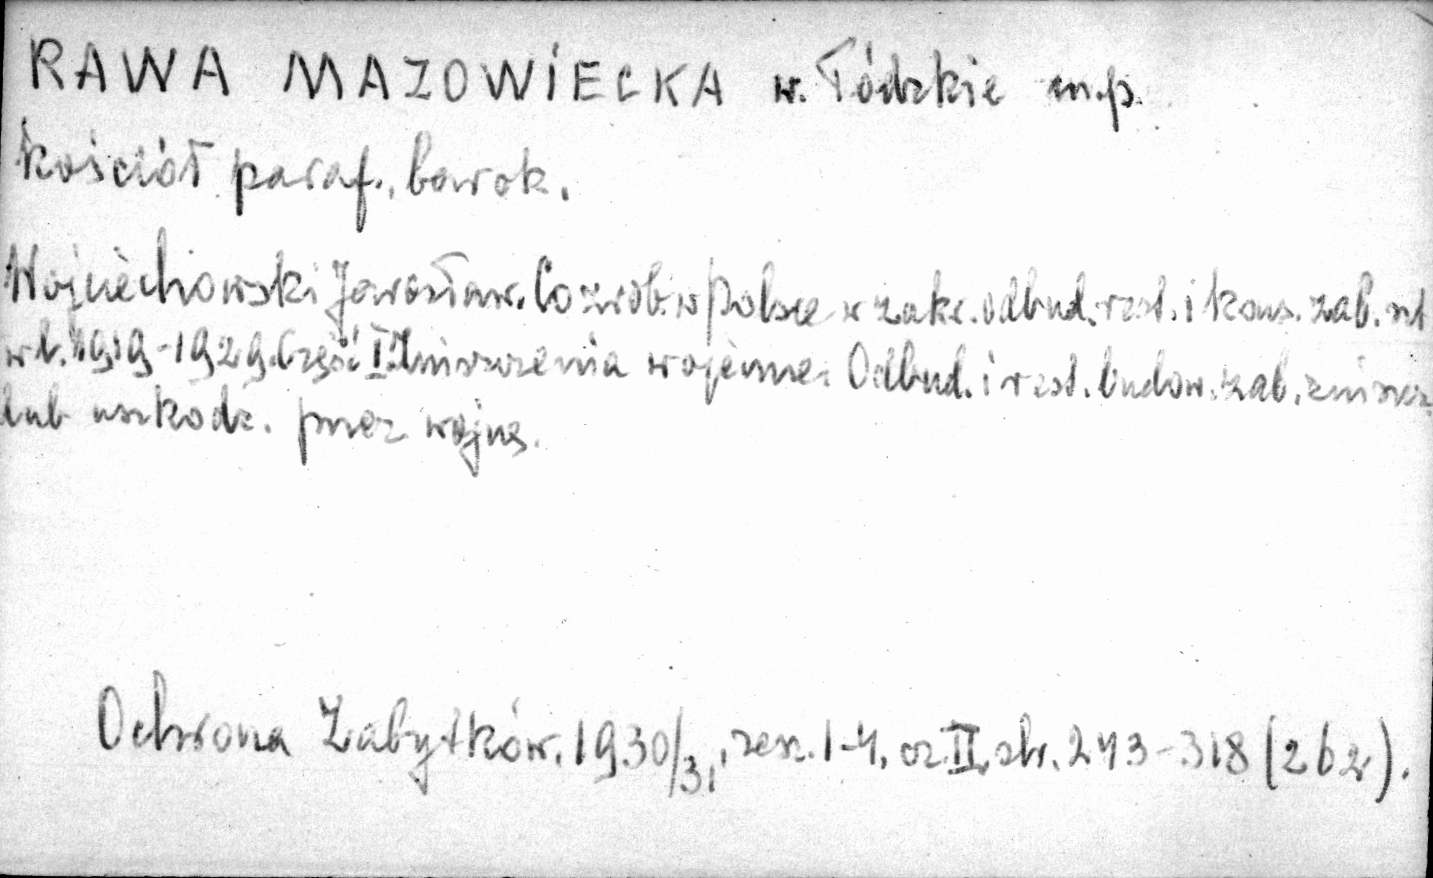 RAWA MAZOWIECKA w. Łódzkie m.p.
kościół paraf., barok.
Wojciechowski Jarosław. Co zrob. w Polsce w zakr. odbud. rest. i kons. zab. szt
w l. 1919-1929. Część I. Zniszczenia wojenne. Odbud. i rest. budow. zab. zniszcz.
lub uszkodz. przez wojnę.
Ochrona Zabytków. 1930/31, zesz. 1-4, cz. II, str. 243-318 (262).